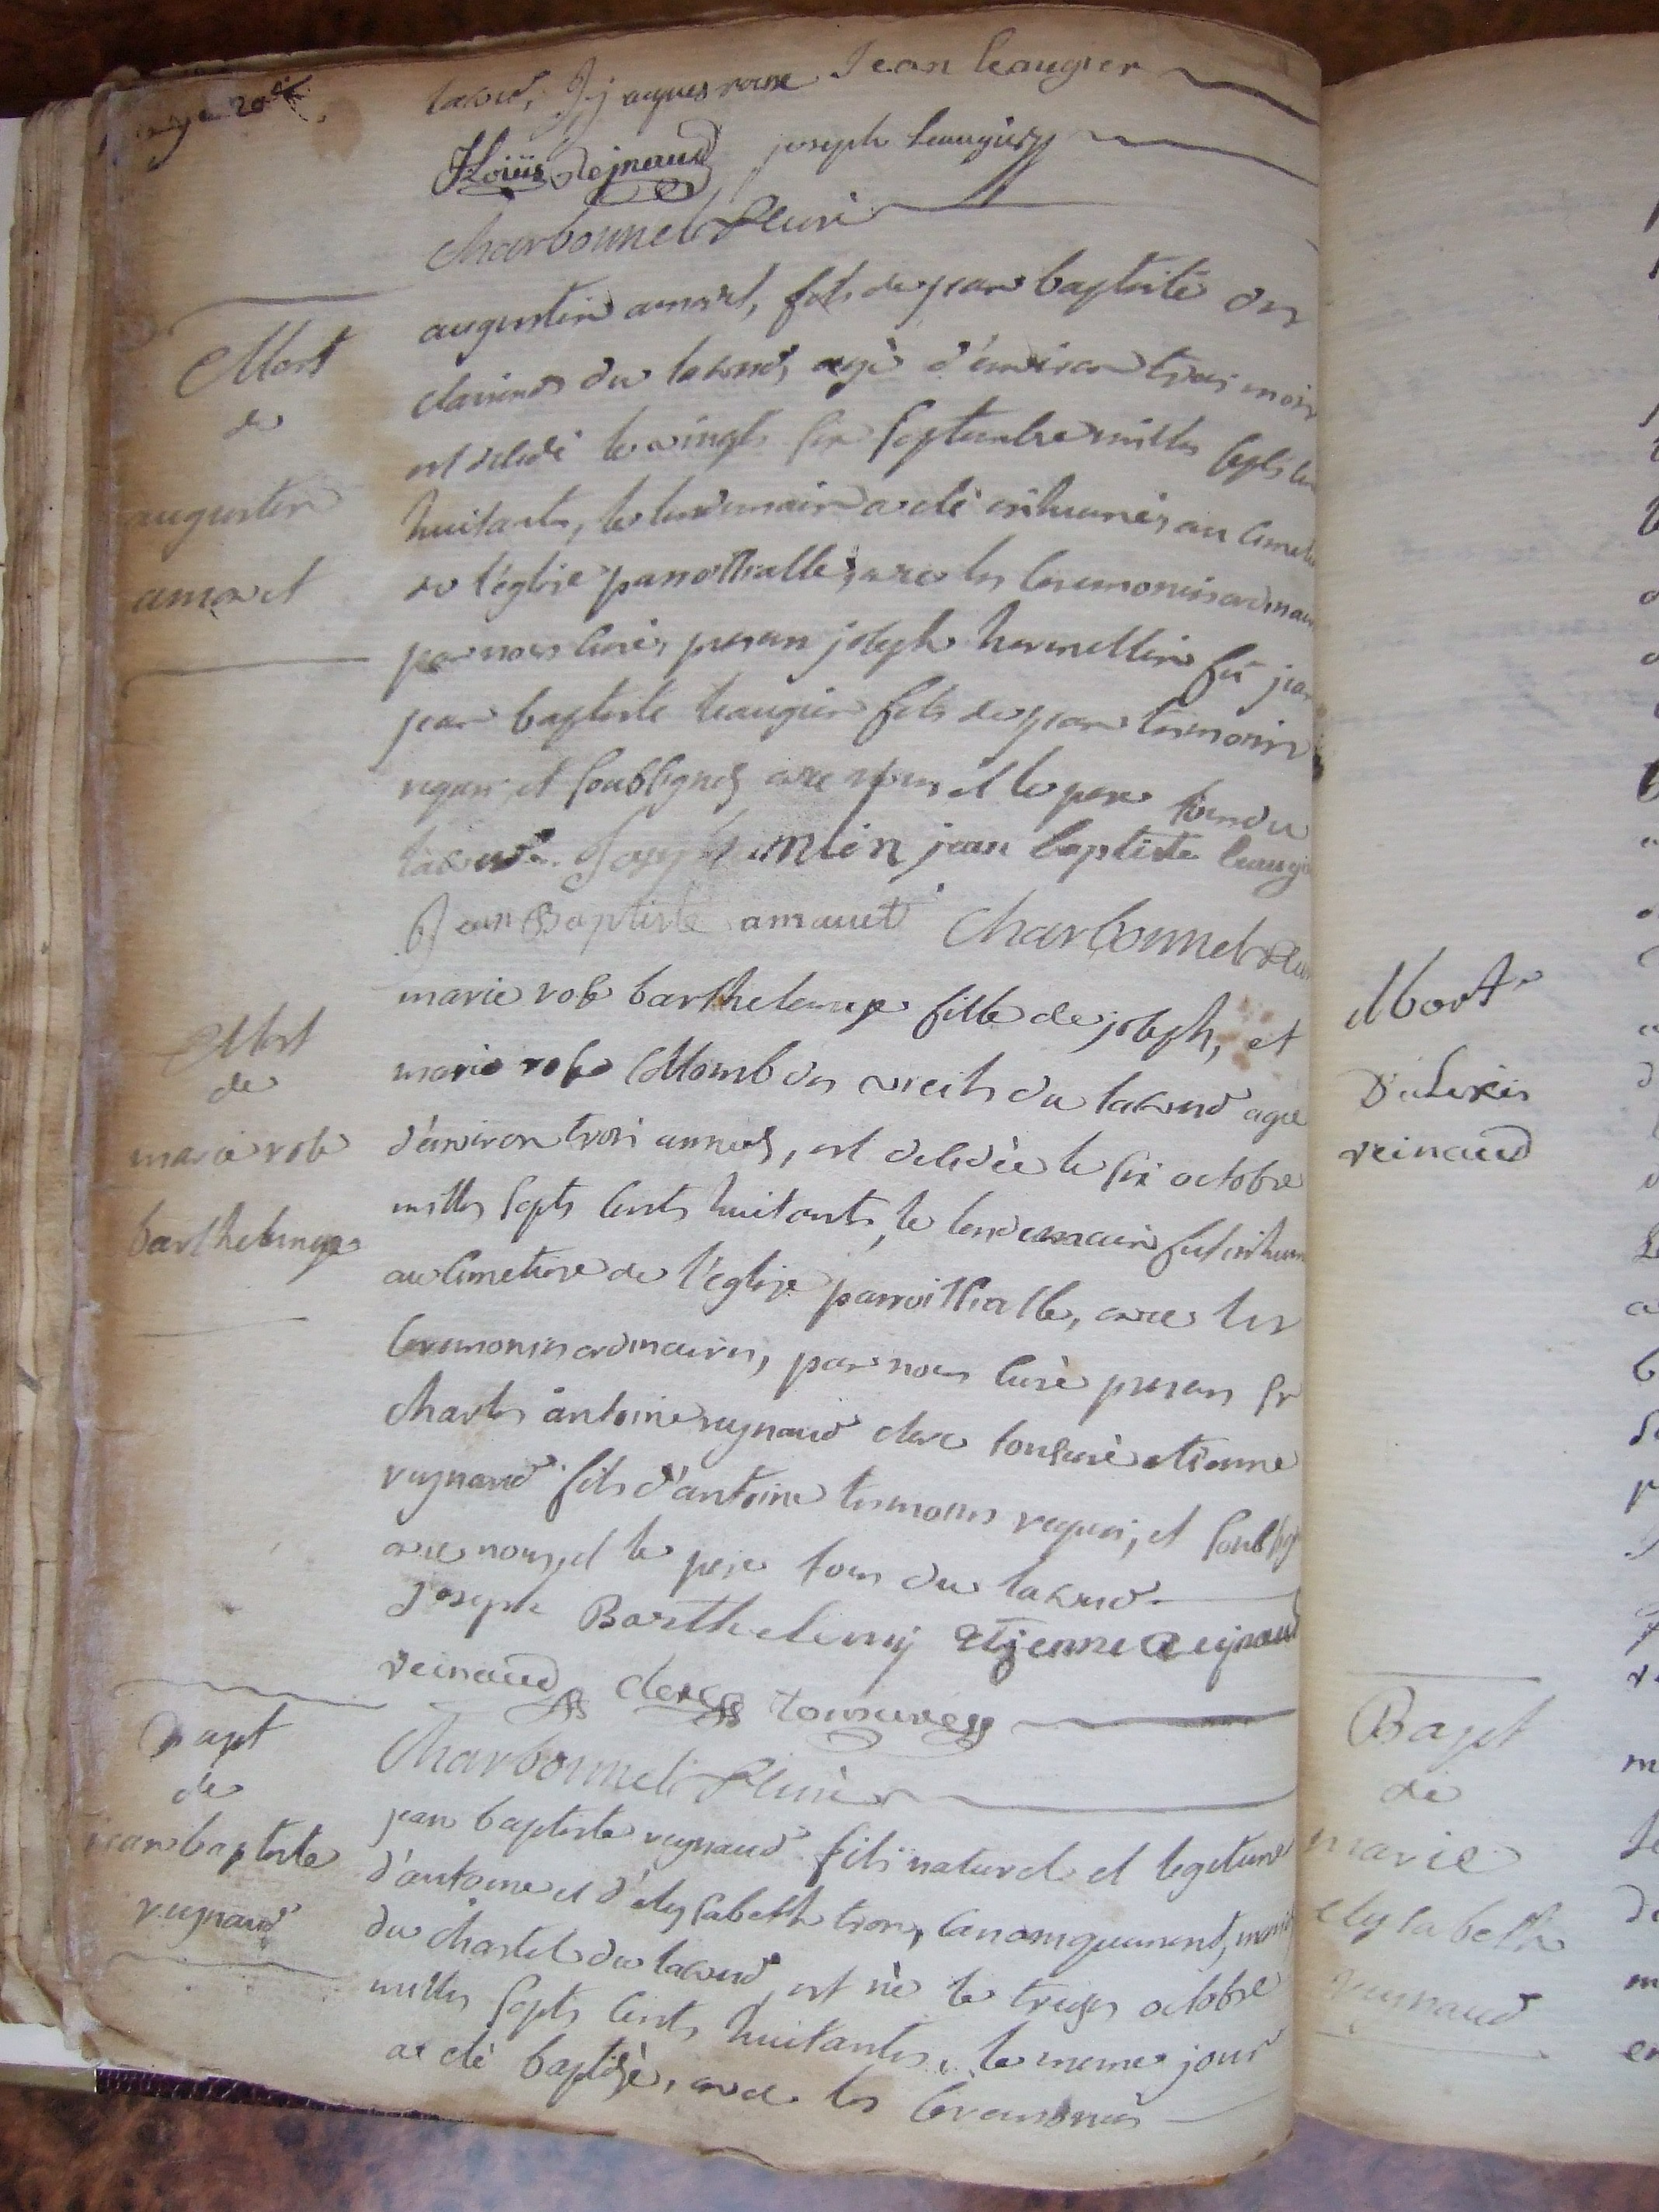 Jean Leaugier
Loüis Rejnaud joseph leaugier
Charbonnel Curé
Mort
de
augustin
amaret
augustin fils de jean baptiste des
du laverd, agé d'environ trois mois
est decedé le vingt six septembre milles septs cen
huitantes, le lendemain a eté inhumé, au cimeti
de l'eglise parroissialle, avec les ceremonies ordinair
par nous curé, presan joseph fû jean
jean baptiste leaugier fils de jean tesmoins
requis, et soubsignes avec nous et le pere tous du
laverd. jean baptiste leaugi
Jean Baptiste amauret Charbonnel Cur
Mort
de
marie rose
barthelemye
marie rose barthelemye fille de joseph, et
marie rose Collomb des du laverd agée
d'environ trois années, est decedée le six octobre
milles septs cents huitantes, le lendemain fut inhum
au cimetiere de l'eglise parroissialle, avec les
ceremonies ordinaires, par nous curé presans sr
charles antoine reynaud clerc tonsuré etienne
reynaud fils d'antoine tesmoins requis, et soubsig
avec nous, et le pere tous du laverd.
Joseph Barthelemij Etjenne Reijnaud
reinaud clerc tonsure
Charbonnel Curé
Bapt
de
jean baptiste
reynaud
jean baptiste reynaud fils naturel et legitime
d'antoine et d'elysabeth tron, canoniquement, marie
du chastel du laverd est né le treizes octobre
milles septs cents huitantes, le meme jour
a eté baptisé, avec les ceremonies
Mort
D'alexis
reinaud
Bapt
de
marie
elysabeth
reynaud